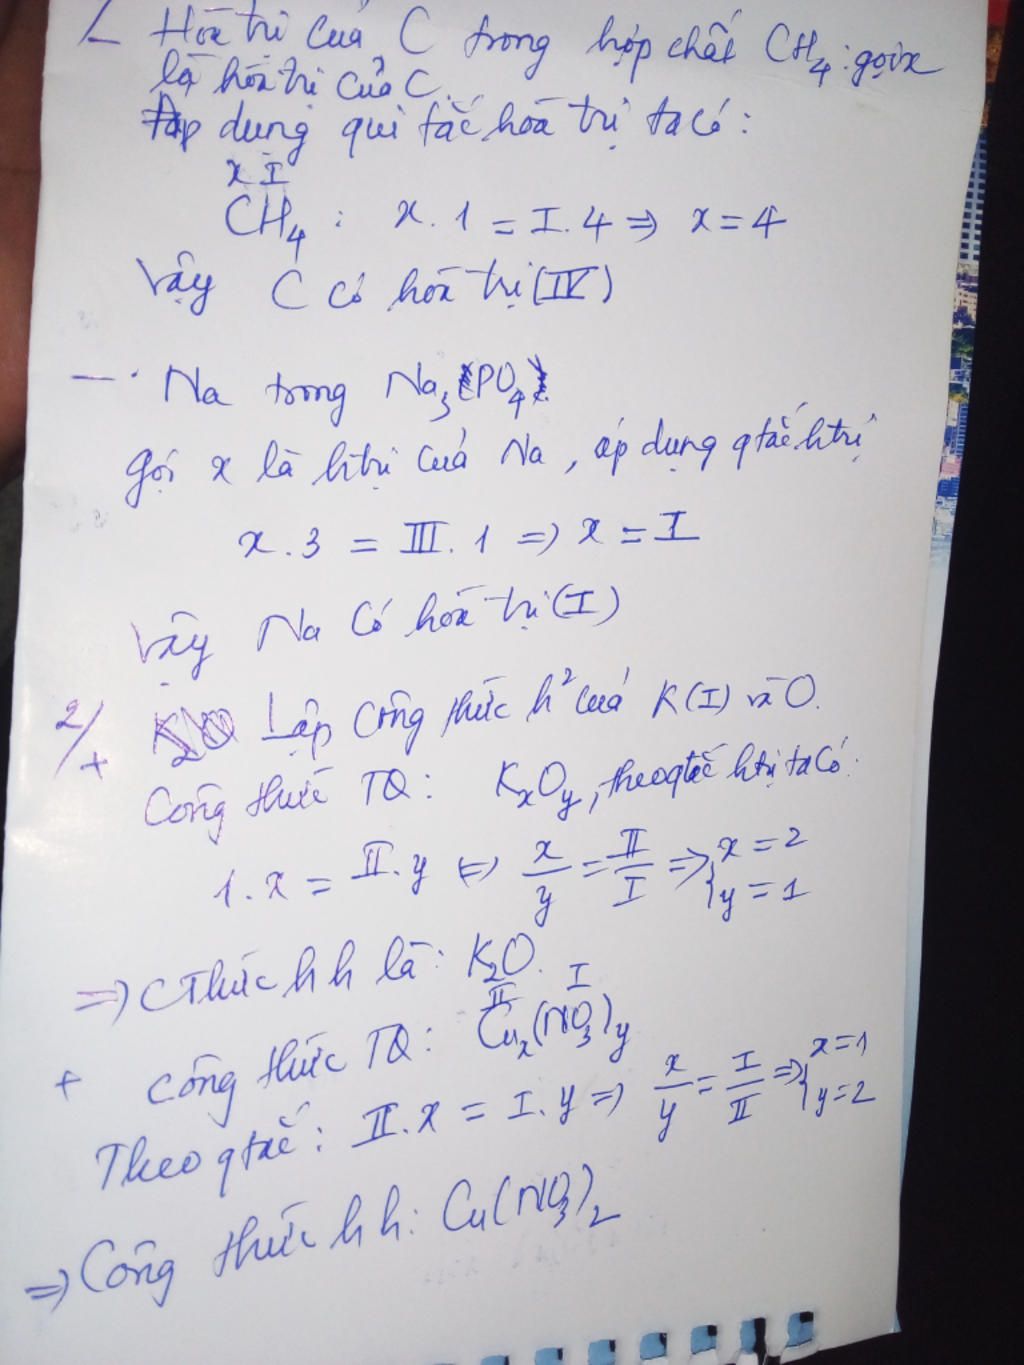 1. Hóa trị của C trong hợp chất CH4: gọi x
là hóa trị của C.
Áp dụng qui tắc hóa trị ta có:
x I
CH4 : x.1 = I.4 ⇒ x = 4
Vậy C có hóa trị (IV)
— Na trong Na3PO4
Gọi x là htrị của Na, áp dụng qtắc htrị
x.3 = III.1 ⇒ x = I
Vậy Na có hóa trị (I)
2/ Lập công thức h² của K(I) và O.
+ Công thức TQ: KxOy, theo qtắc htrị ta có:
1.x = II.y ⇔ x/y = II/I ⇒ { x = 2
y = 1
⇒ CThức hh là: K2O.
II I
+ Công thức TQ: Cux(NO3)y
Theo qtắc: II.x = I.y ⇒ x/y = I/II ⇒ { x=1
y=2
⇒ Công thức hh: Cu(NO3)2